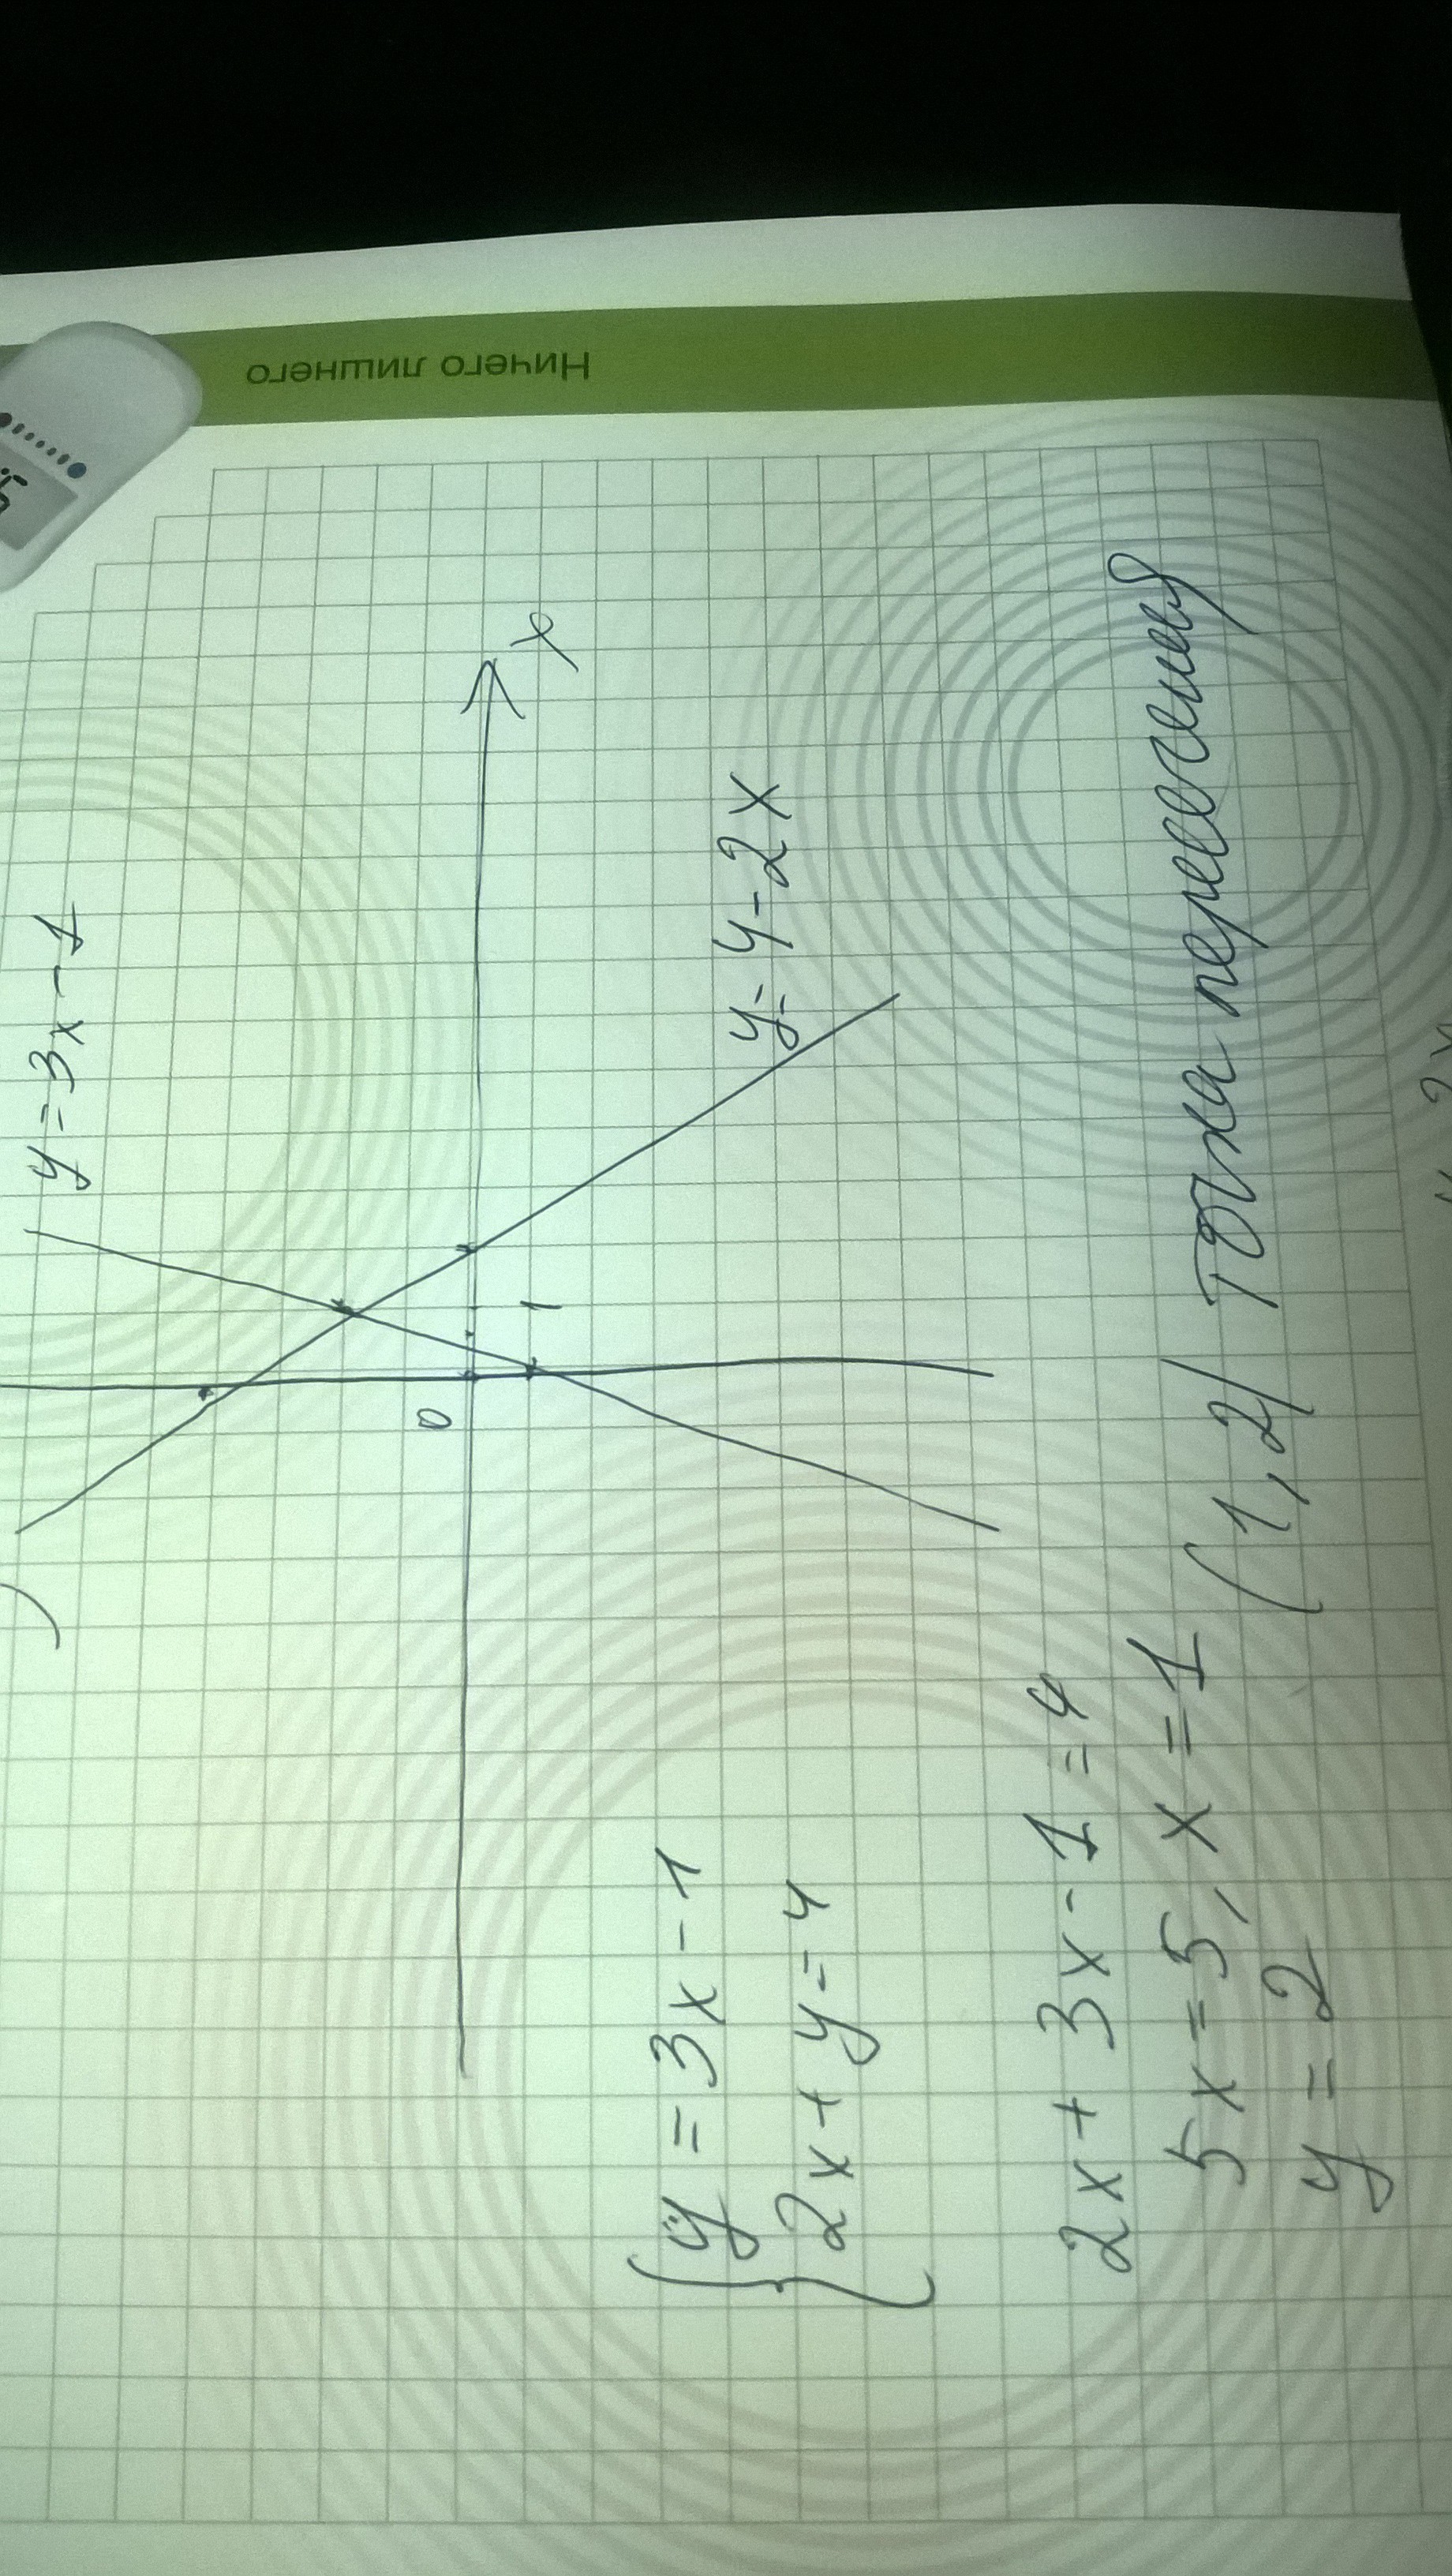 Ничего лишнего
y = 3x - 1
x
0
1
y = 4 - 2x
{ y = 3x - 1
2x + y = 4
2x + 3x - 1 = 4
5x = 5, x = 1
y = 2
(1, 2) точка пересечения